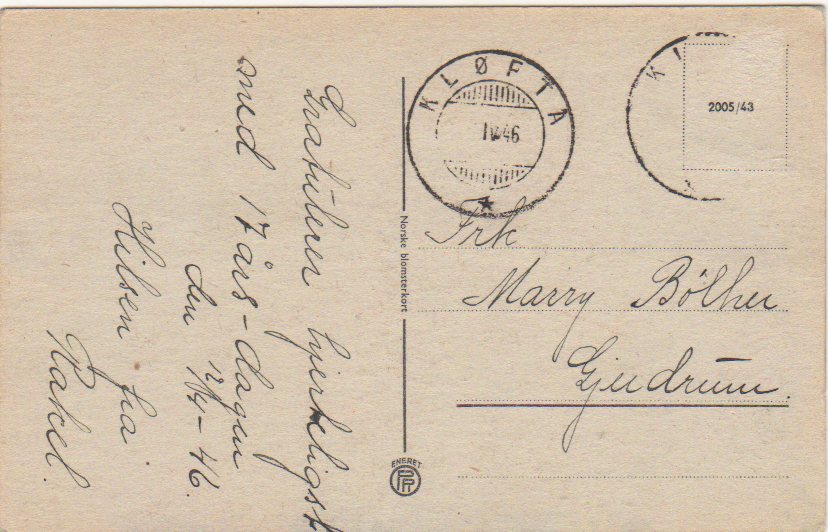 Gratulerer hjerteligst
med 17 års-dagen
den 12/4-46.
Hilsen fra
Rakel.
KLØFTA
IV 46
KL
2005/43
Norske blomsterkort
Frk
Marry Bölher
Gjerdrum.
ENERET